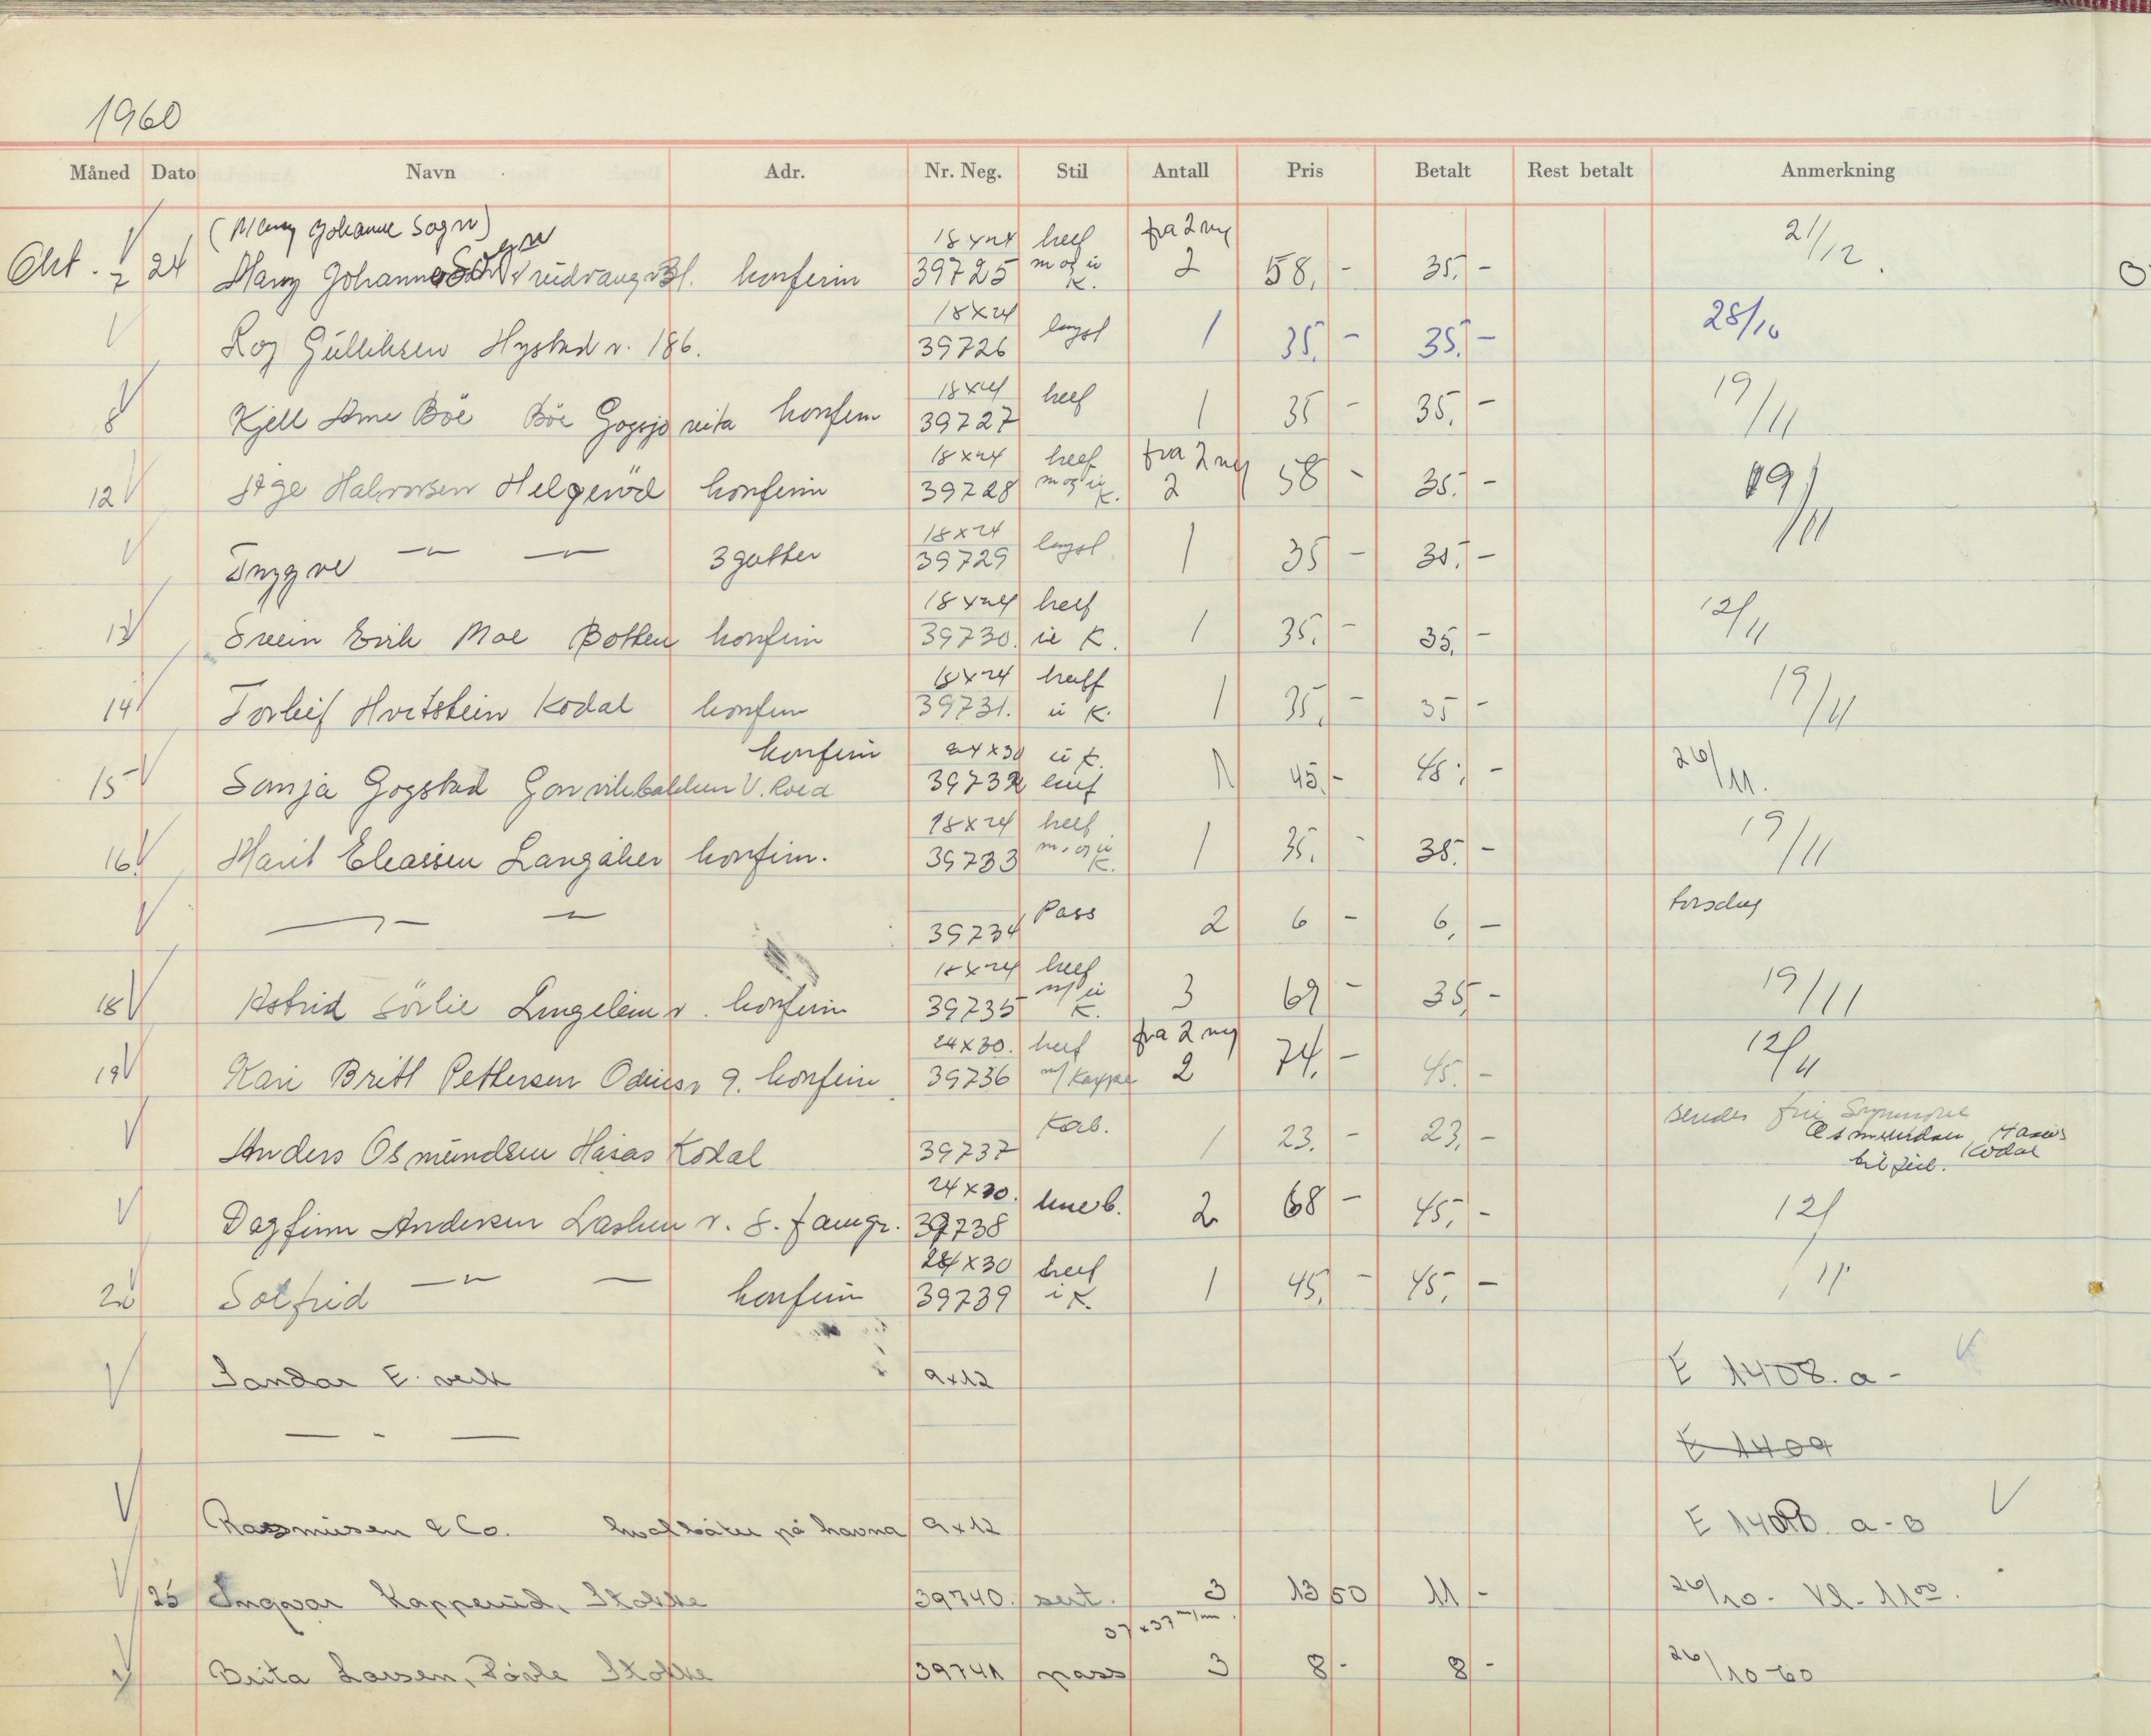 1960
Måned Dato Navn Adr. Nr. Neg. Stil Antall Pris Betalt Rest betalt Anmerkning
(Mary Johanne Sogn) 18x24 heel fra 2 ny 21/12.
Okt. 7 24 Mary Johanne Sogn konfirm 39725 m og u K. 2 58,- 35,-
18x24
Roy Gülliksen Hystad v. 186. 39726 1 35,- 35,- 28/10
18x24 heel
8 Kjell Arne Böe Böe Gogsjø konfirm 39727 1 35 - 35,- 19/11
18x24 heel fra 2 ny
12 Åge Halvorsen Helgeröd konfirm 39728 m og u K. 2 58 - 35,- 19/11
18x24
Trygve —"— —"— 3 gutter 39729 1 35 - 35,-
18x24 heel
13 Svein Erik Moe Botten konfirm 39730. u K. 1 35,- 35,- 12/11
18x24 half
14 Torleif Hvitstein Kodal konfirm 39731. u K. 1 35,- 35 - 19/11
konfirm 24x30 u K.
15 Sonja Gogstad 39732 1 45,- 45,- 26/11.
18x24 heel
16. Marit Eliassen Langåker konfirm. 39733 m. og u K. 1 35,- 35,- 19/11
—"— —"— 39734 Pass 2 6 - 6,- torsdag
18x24 heel
18 Astrid Sörlie konfirm 39735 m/u K. 3 69 - 35,- 19/11
24x30. heel fra 2 ny
19 Kari Britt Pettersen Odinsv 9. konfirm 39736 m/kappe 2 74,- 45,- 12/11
Kab. sendes
Anders Osmündsen Håsås Kodal 39737 1 23,- 23,- Osmundsen, Håsås Kodal
til jul.
24x30.
Dagfinn Andersen v. 8. famgr. 39738 2 68 - 45,- 12/11
24x30 heel
20 Solfrid —"— — konfirm 39739 i K. 1 45,- 45,-
Sandar E. verk 9x12 E 1408. a-
— " — E 1409
Rasmüsen & Co. hvalbåter på havna 9x12 a-B
25 Ingvar Kapperüd, Stokke 39740. sert. 3 13 50 11 - 26/10 - Kl. 11 00.
37x37 m/m.
Brita Larsen, Stokke 39741 pass 3 8 - 8 - 26/10-60